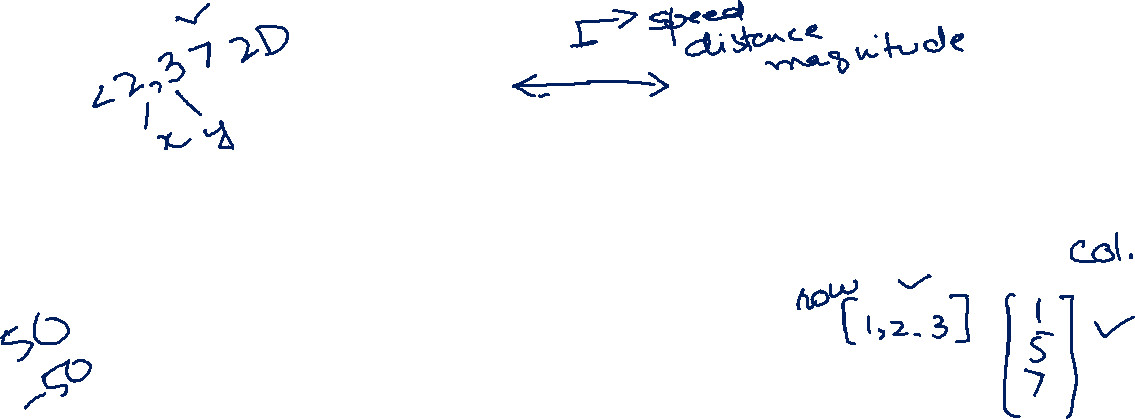 <2,3> 2D
x y
I → speed
distance
magnitude
col.
row [1,2.3] [1
5
7]
50
-50